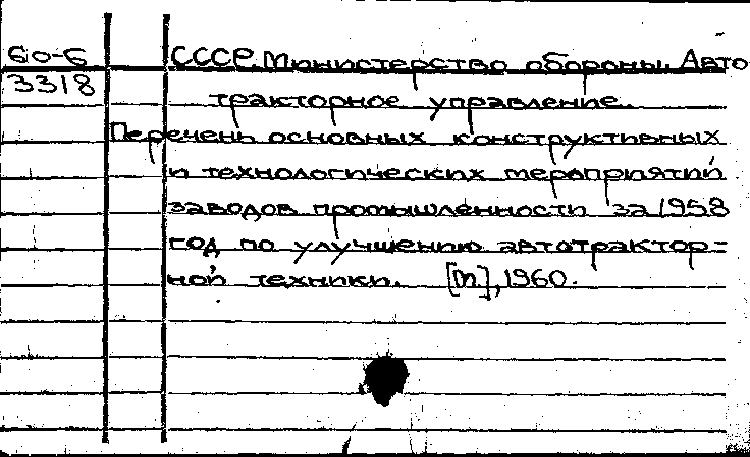 60-6 СССР. Министерство обороны. Авто
3318
тракторное управление.
Перечень основных конструктивных
и технологических мероприятий
заводов промышленности за 1958
год по улучшению автотрактор=
ной техники. [М], 1960.